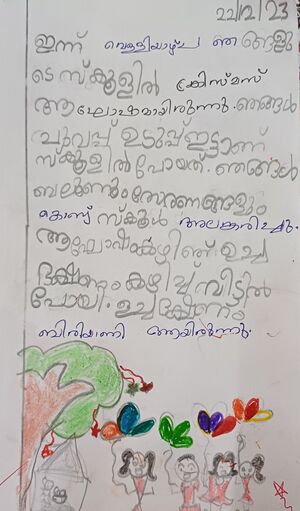 22/12/23
ഇന്ന് വെള്ളിയാഴ്ച ഞങ്ങളു
ടെ സ്കൂളിൽ ക്രിസ്മസ്
ആഘോഷമായിരുന്നു. ഞങ്ങൾ
ചുവപ്പ് ഉടുപ്പ് ഇട്ടാണ്
സ്കൂളിൽ പോയത്. ഞങ്ങൾ
ബലൂണും തോരണങ്ങളും
കൊണ്ട് സ്കൂൾ അലങ്കരിച്ചു.
ആഘോഷം കഴിഞ്ഞ് ഉച്ച
ഭക്ഷണം കഴിച്ച് വീട്ടിൽ
പോയി. ഉച്ചഭക്ഷണം
ബിരിയാണി ആയിരുന്നു.